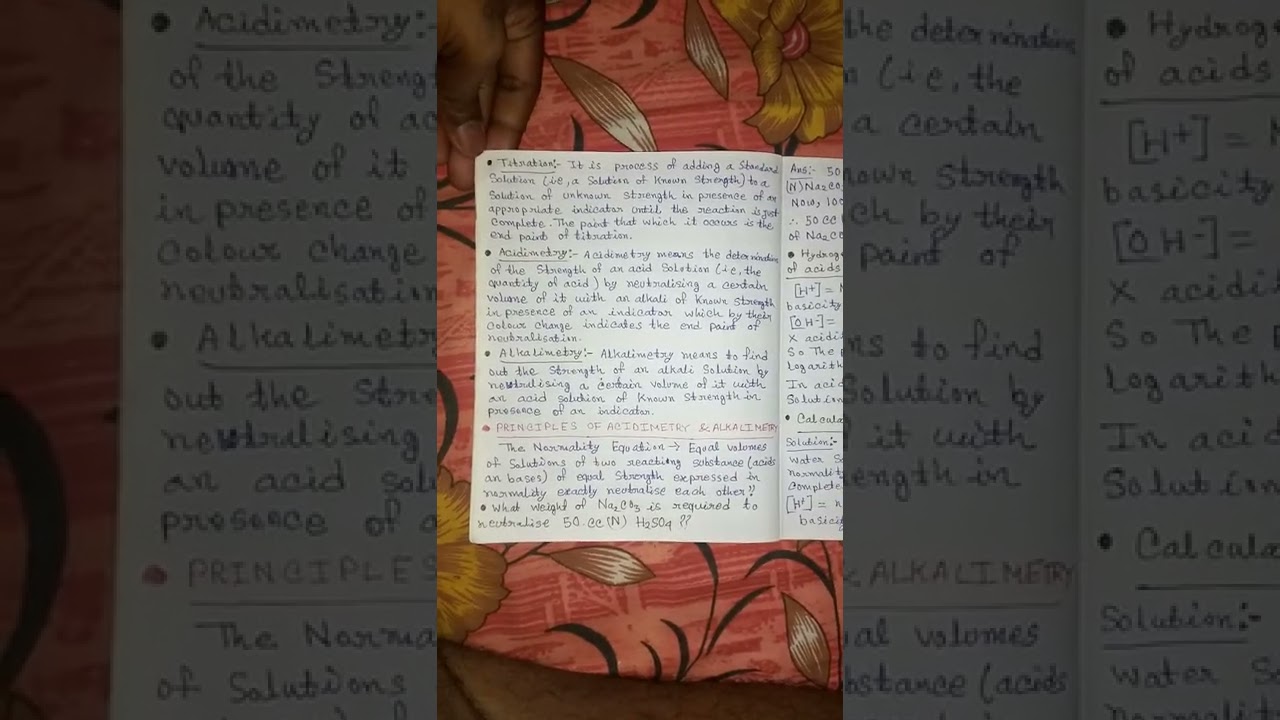 • Titration:- It is process of adding a Standard
Solution (i.e, a Solution of Known Strength) to a
Solution of unknown Strength in presence of an
appropriate indicator until, the reaction is just
complete. The point that which it occurs is the
end point of titration.
• Acidimetry:- Acidimetry means the determination
of the Strength of an acid Solution (i.e, the
quantity of acid) by neutralising a certain
volume of it with an alkali of Known Strength
in presence of an indicator which by their
Colour change indicates the end point of
neutralisation.
• Alkalimetry:- Alkalimetry means to find
out the Strength of an alkali Solution by
neutralising a certain volume of it with
an acid solution of Known Strength in
presence of an indicator.
• PRINCIPLES OF ACIDIMETRY & ALKALIMETRY
The Normality Equation → Equal volumes
of Solutions of two reacting substance (acids
an bases) of equal Strength expressed in
normality exactly neutralise each other"
• What weight of Na2CO3 is required to
neutralise 50.cc (N) H2SO4 ??
Ans:- 50
(N) Na2CO
Now, 100
∴ 50 CC
of Na2CO
• Hydrog
of acids
[H+] =
basicity
[OH-] =
x acidi
So The
Logarith
In acid
Solution
• Calcula
Solution:-
Water So
normalit
Complete
[H+] = n
basici